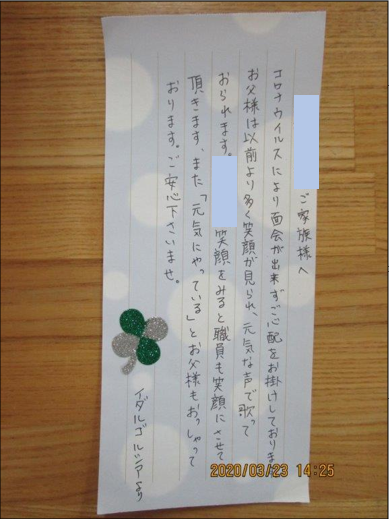 ご家族様へ
コロナウイルスにより面会が出来ずご心配をお掛けしておりま
お父様は以前より多く笑顔が見られ、元気な声で歌って
おられます。笑顔をみると職員も笑顔にさせて
頂きます、また「元気にやっている」とお父様もおっしゃって
おります。ご安心下さいませ。
イダルゴルシアより
2020/03/23 14:25